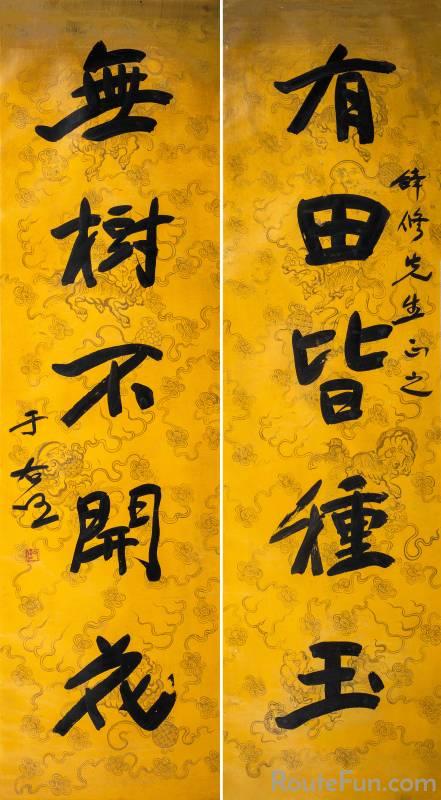 有田皆種玉
修先生正之
無樹不開花
于右任
RouteFun.com